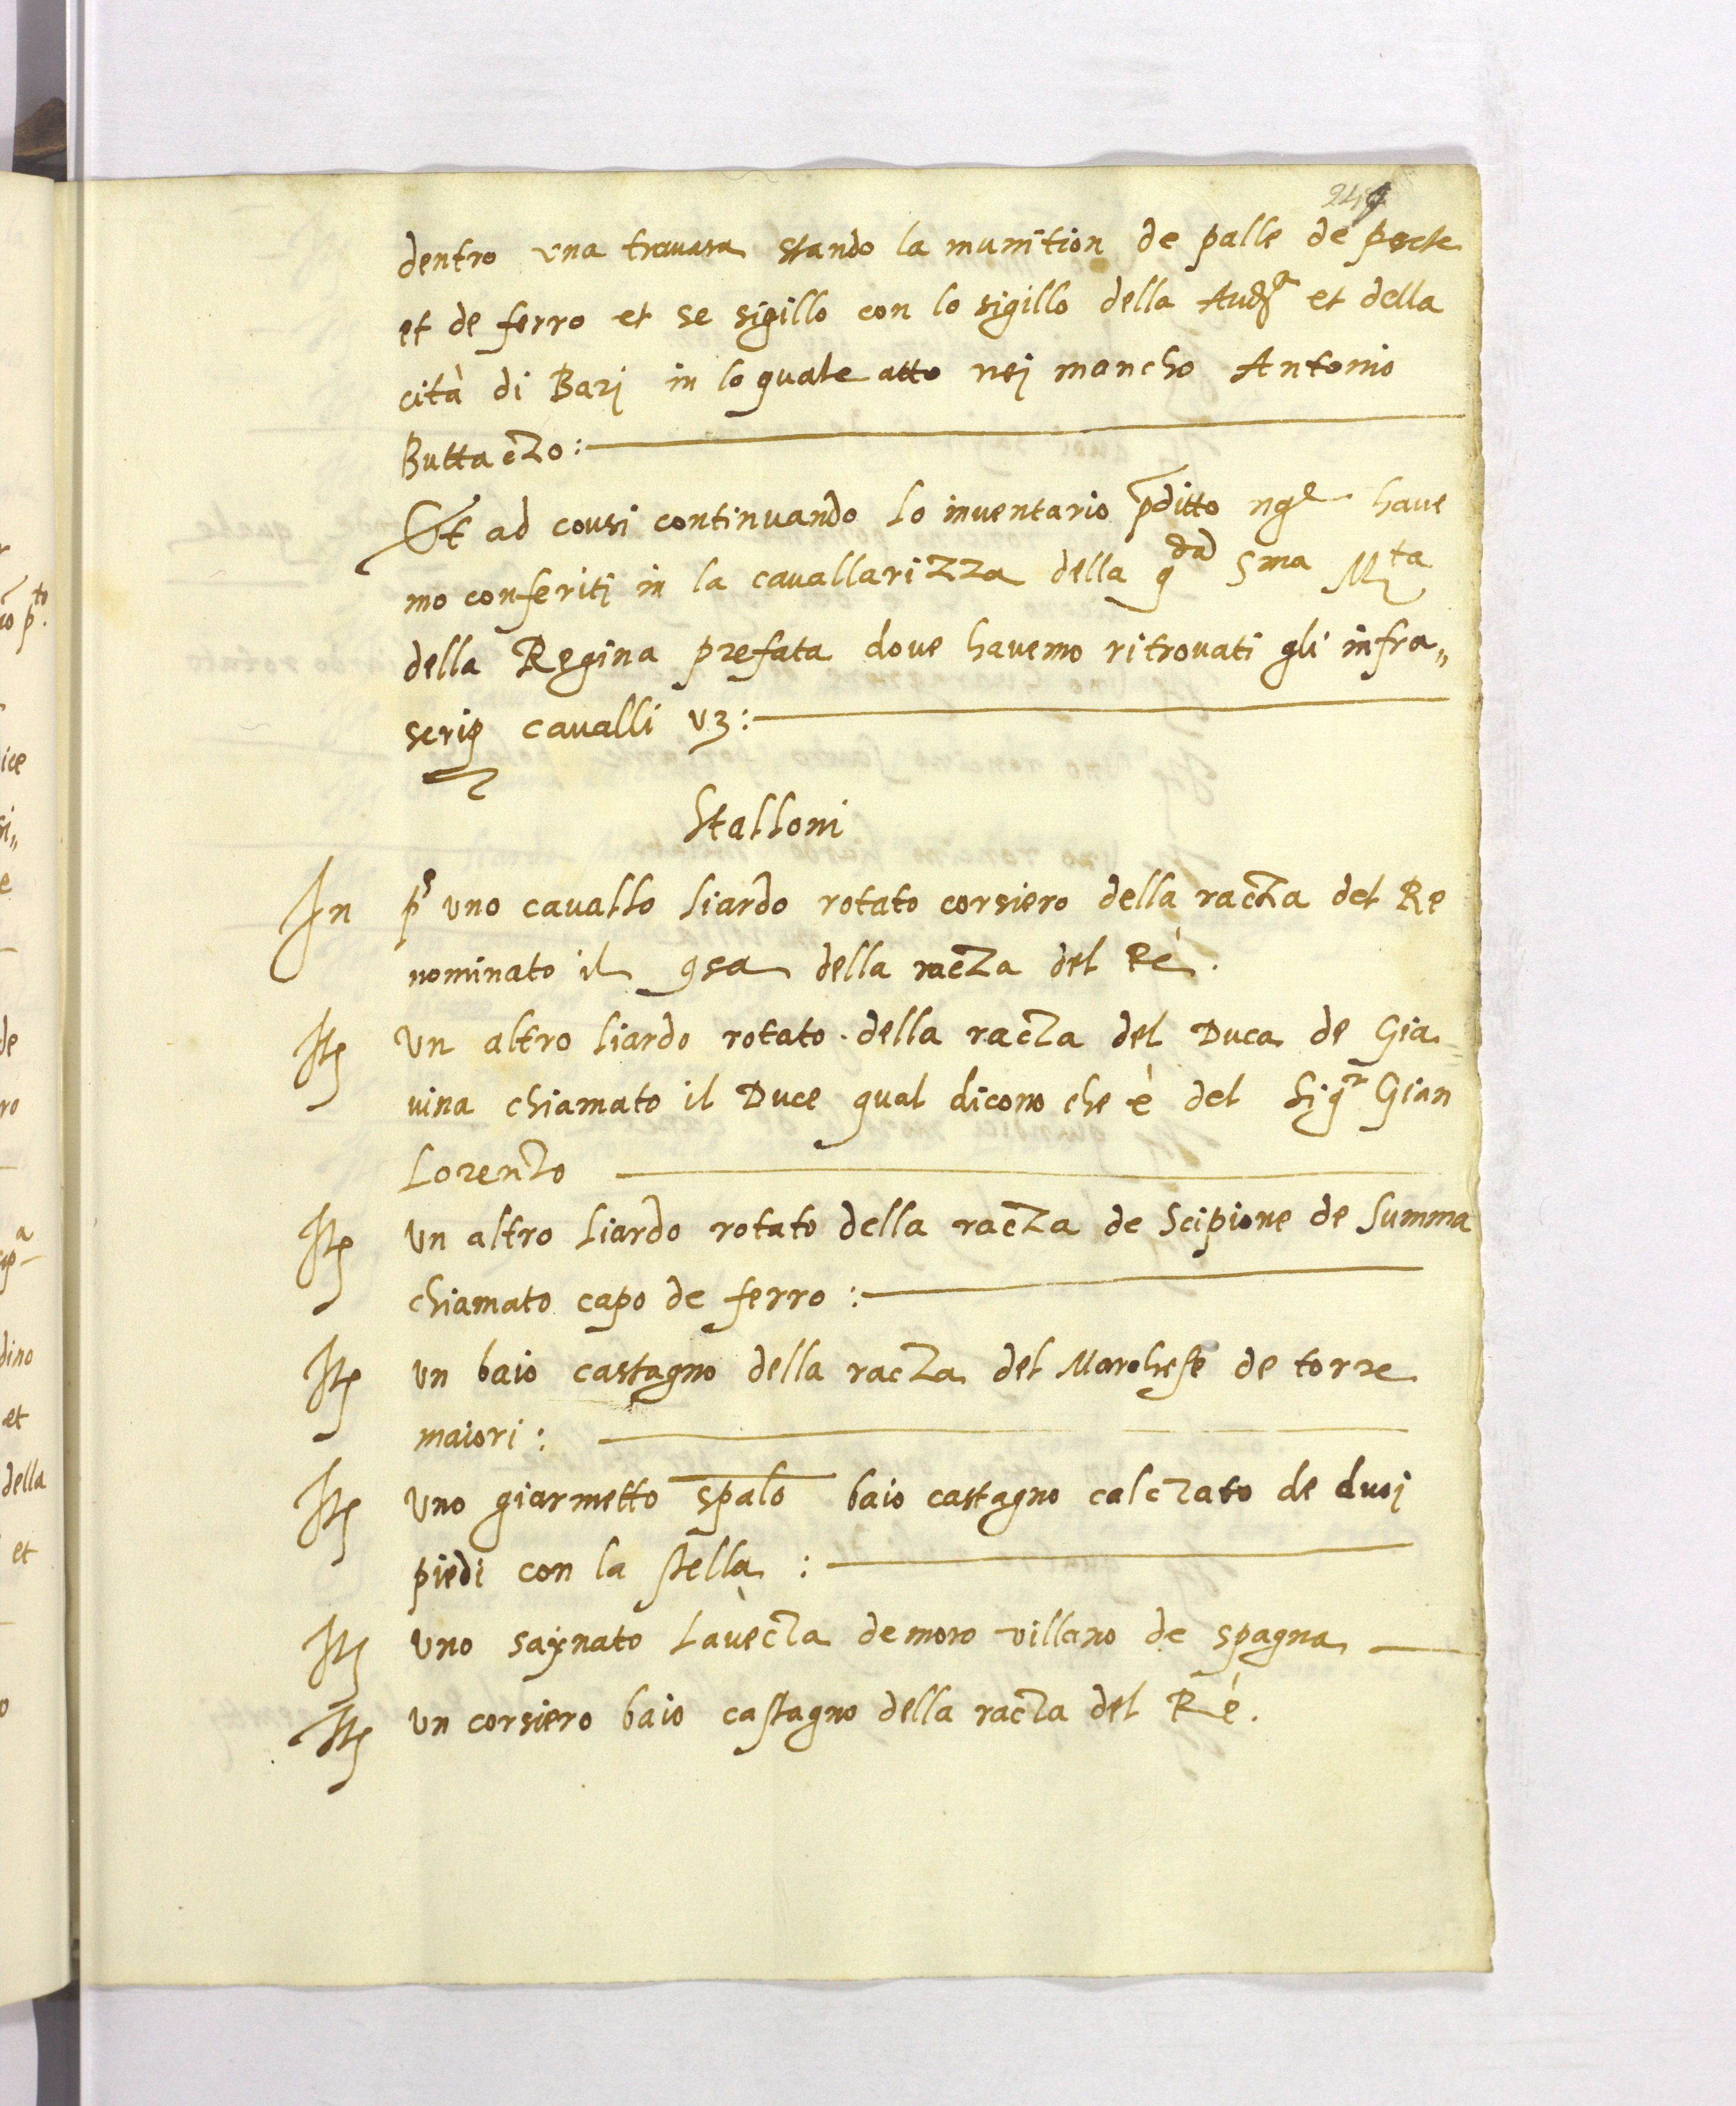 dentro una travata stando la munition de palle de petre
et de ferro et se sigillo con lo sigillo della Audᵃ et della
cità di Barj in lo quale atto nej mancho Antonio
Buttaczo:
Et ad cousi continuando lo inventario pditto have
mo conferiti in la cavallarizza della qdad Sma Mta
della Regina prefata dove havemo ritrovati gli infra„
scrip cavalli vz:
Stalloni
In pᵉ uno cavallo liardo rotato corsiero della racza del Re
nominato il della racza del Rè.
It Un altro liardo rotato della racza del Duca de Gia=
vina chiamato il Duce qual dicono che è del Sigʳ Gian
Lorenzo
It Un altro liardo rotato della racza de Scipione de Summa
chiamato capo de ferro:
It un baio castagno della racza del Marchese de torre
maiori:
It Uno giarmetto spalo baio castagno calczato de duoj
piedi con la stella:
It Uno saynato Lavecza de moro villano de spagna
It un corsiero baio castagno della racza del Rè.